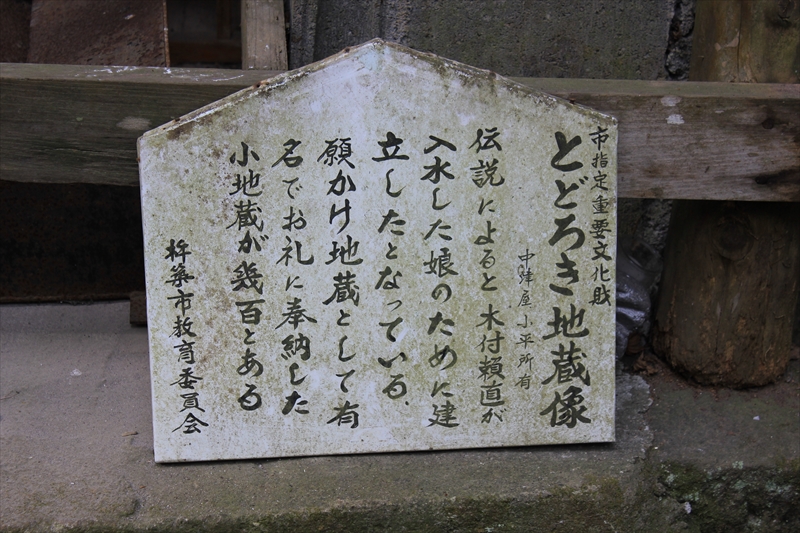 市指定重要文化財
とどろき地蔵像
中津屋 小平所有
伝説によると 木付頼直が
入水した娘のために建
立したとなっている、
願かけ地蔵として有
名でお礼に奉納した
小地蔵が幾百とある
杵築市教育委員会